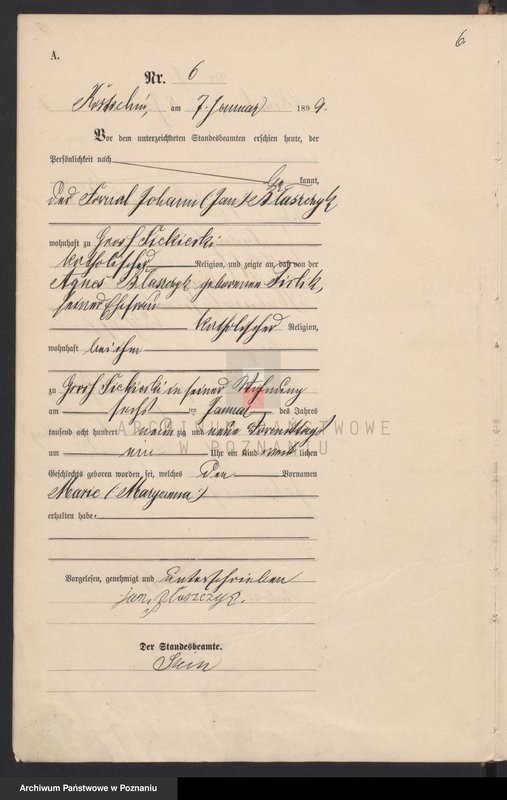 6.
A.
Nr. 6
Kostschin, am 7. Januar 1899.
Vor dem unterzeichneten Standesbeamten erschien heute, der
Persönlichkeit nach
be kannt,
der Fornal Johann (Jan) Błaszczyk
wohnhaft zu Groß Siekierki
katholischer Religion, und zeigte an, daß von der
Agnes Błaszczyk geborenen
seiner Ehefrau
katholischer Religion,
wohnhaft bei ihm
zu Groß Siekierki in seiner Wohnung
am sechs ten Januar des Jahres
tausend acht hundert neun zig und neun Vormittags
um ein Uhr ein Kind weib lichen
Geschlechts geboren worden sei, welches den Vornamen
Marie (Maryanna)
erhalten habe.
Vorgelesen, genehmigt und unterschrieben
Jan Błaszczyk.
Der Standesbeamte.
ARCHIWUM PAŃSTWOWE
W POZNANIU
Archiwum Państwowe w Poznaniu